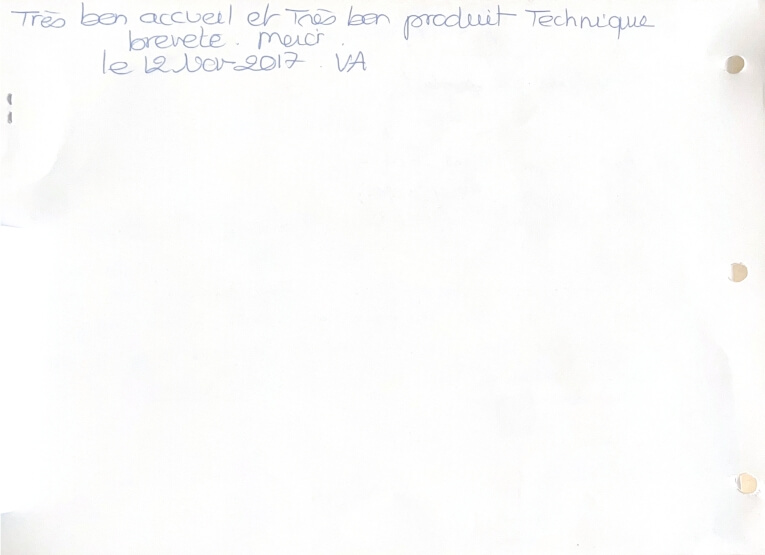 Très bon accueil et Très bon produit Technique
brevete. Merci.
le 12 Nov 2017. VA